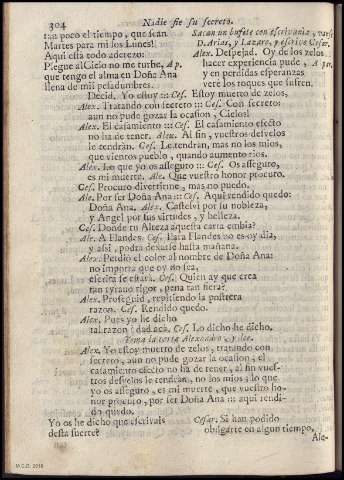 304
Nadie fie su secreto.
tan poco el tiempo, que seàn
Martes para mi los Lunes!
Aqui està todo aderezo:
Plegue al Cielo no me turbe, Ap.
que tengo el alma en Doña Ana
llena de mil pesadumbres.
Sacan un bufete con escrivania, vanse
D. Arias, y Lazaro, y escrive Cesar.
Alex. Despejad. Oy de los zelos
hacer experiencia pude, Ap.
y en perdidas esperanzas
verè los toques que sufren.
Decid. Yo estoy ::: Ces. Estoy muerto de zelos,
Alex. Tratando con secreto ::: Ces. Con secreto:
aun no pude gozar la ocasion, Cielos!
Alex. El casamiento ::: Ces. El casamiento efecto
no ha de tener. Alex. Al fin, vuestros desvelos
le tendràn. Ces. Le tendràn, mas no los mios,
que vientos pueblo, quando aumento rios.
Alex. Lo que yo os asseguro ::: Ces. Os asseguro,
es mi muerte. Ale. Que vuestro honor procuro.
Ces. Procuro divertirme, mas no puedo.
Ale. Por ser Doña Ana ::: Ces. Aqui rendido quedo:
Doña Ana. Alex. Castelvì por su nobleza,
y Angel por sus virtudes, y belleza.
Ces. Donde tu Alteza aquesta carta embia?
Ale. A Flandes. Ces. Para Flandes no es oy dia,
y assi, podrà dexarse hasta mañana.
Alex. Perdiò el color al nombre de Doña Ana:
no importa que oy no sea,
escrita se estarà. Ces. Quien ay que crea
tan tyrano rigor, pena tan fiera?
Alex. Proseguid, repitiendo la postrera
razon. Ces. Rendido quedo.
Alex. Pues yo he dicho
tal razon? dad acà. Ces. Lo dicho he dicho.
Toma la carta Alexandro, y lee.
Alex. Yo estoy muerto de zelos, tratando con
secreto, aun no pude gozar la ocasion; el
casamiento efecto no ha de tener, al fin vues-
tros desvelos le tendràn, no los mios; lo que
yo os asseguro, es mi muerte, que vuestro ho-
nor procuro, por ser Doña Ana ::: aqui rendi-
do quedo.
Yo os he dicho que escrivais
desta suerte?
Cesar. Si han podido
obligarte en algun tiempo,
Ale-
M.C.D. 2018